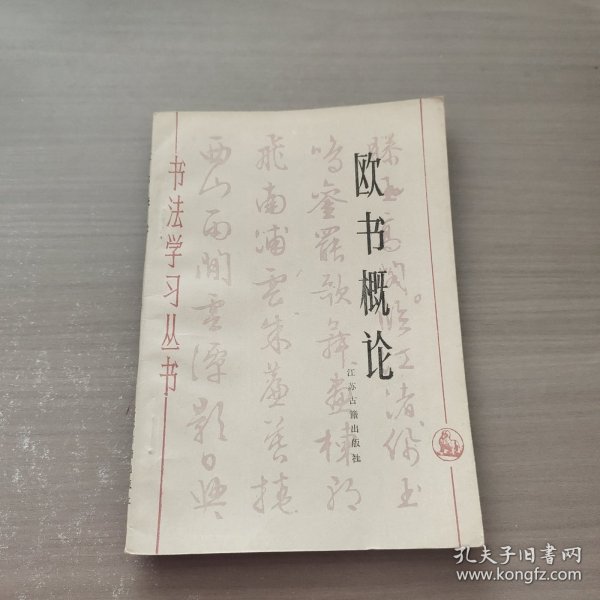 欧书概论
江苏古籍出版社
书法学习丛书
滕王高阁临江渚佩玉
鸣銮罢歌舞画栋朝
飞南浦云朱帘暮捲
西山雨閒云潭影日悠
孔夫子旧书网
www.kongfz.com